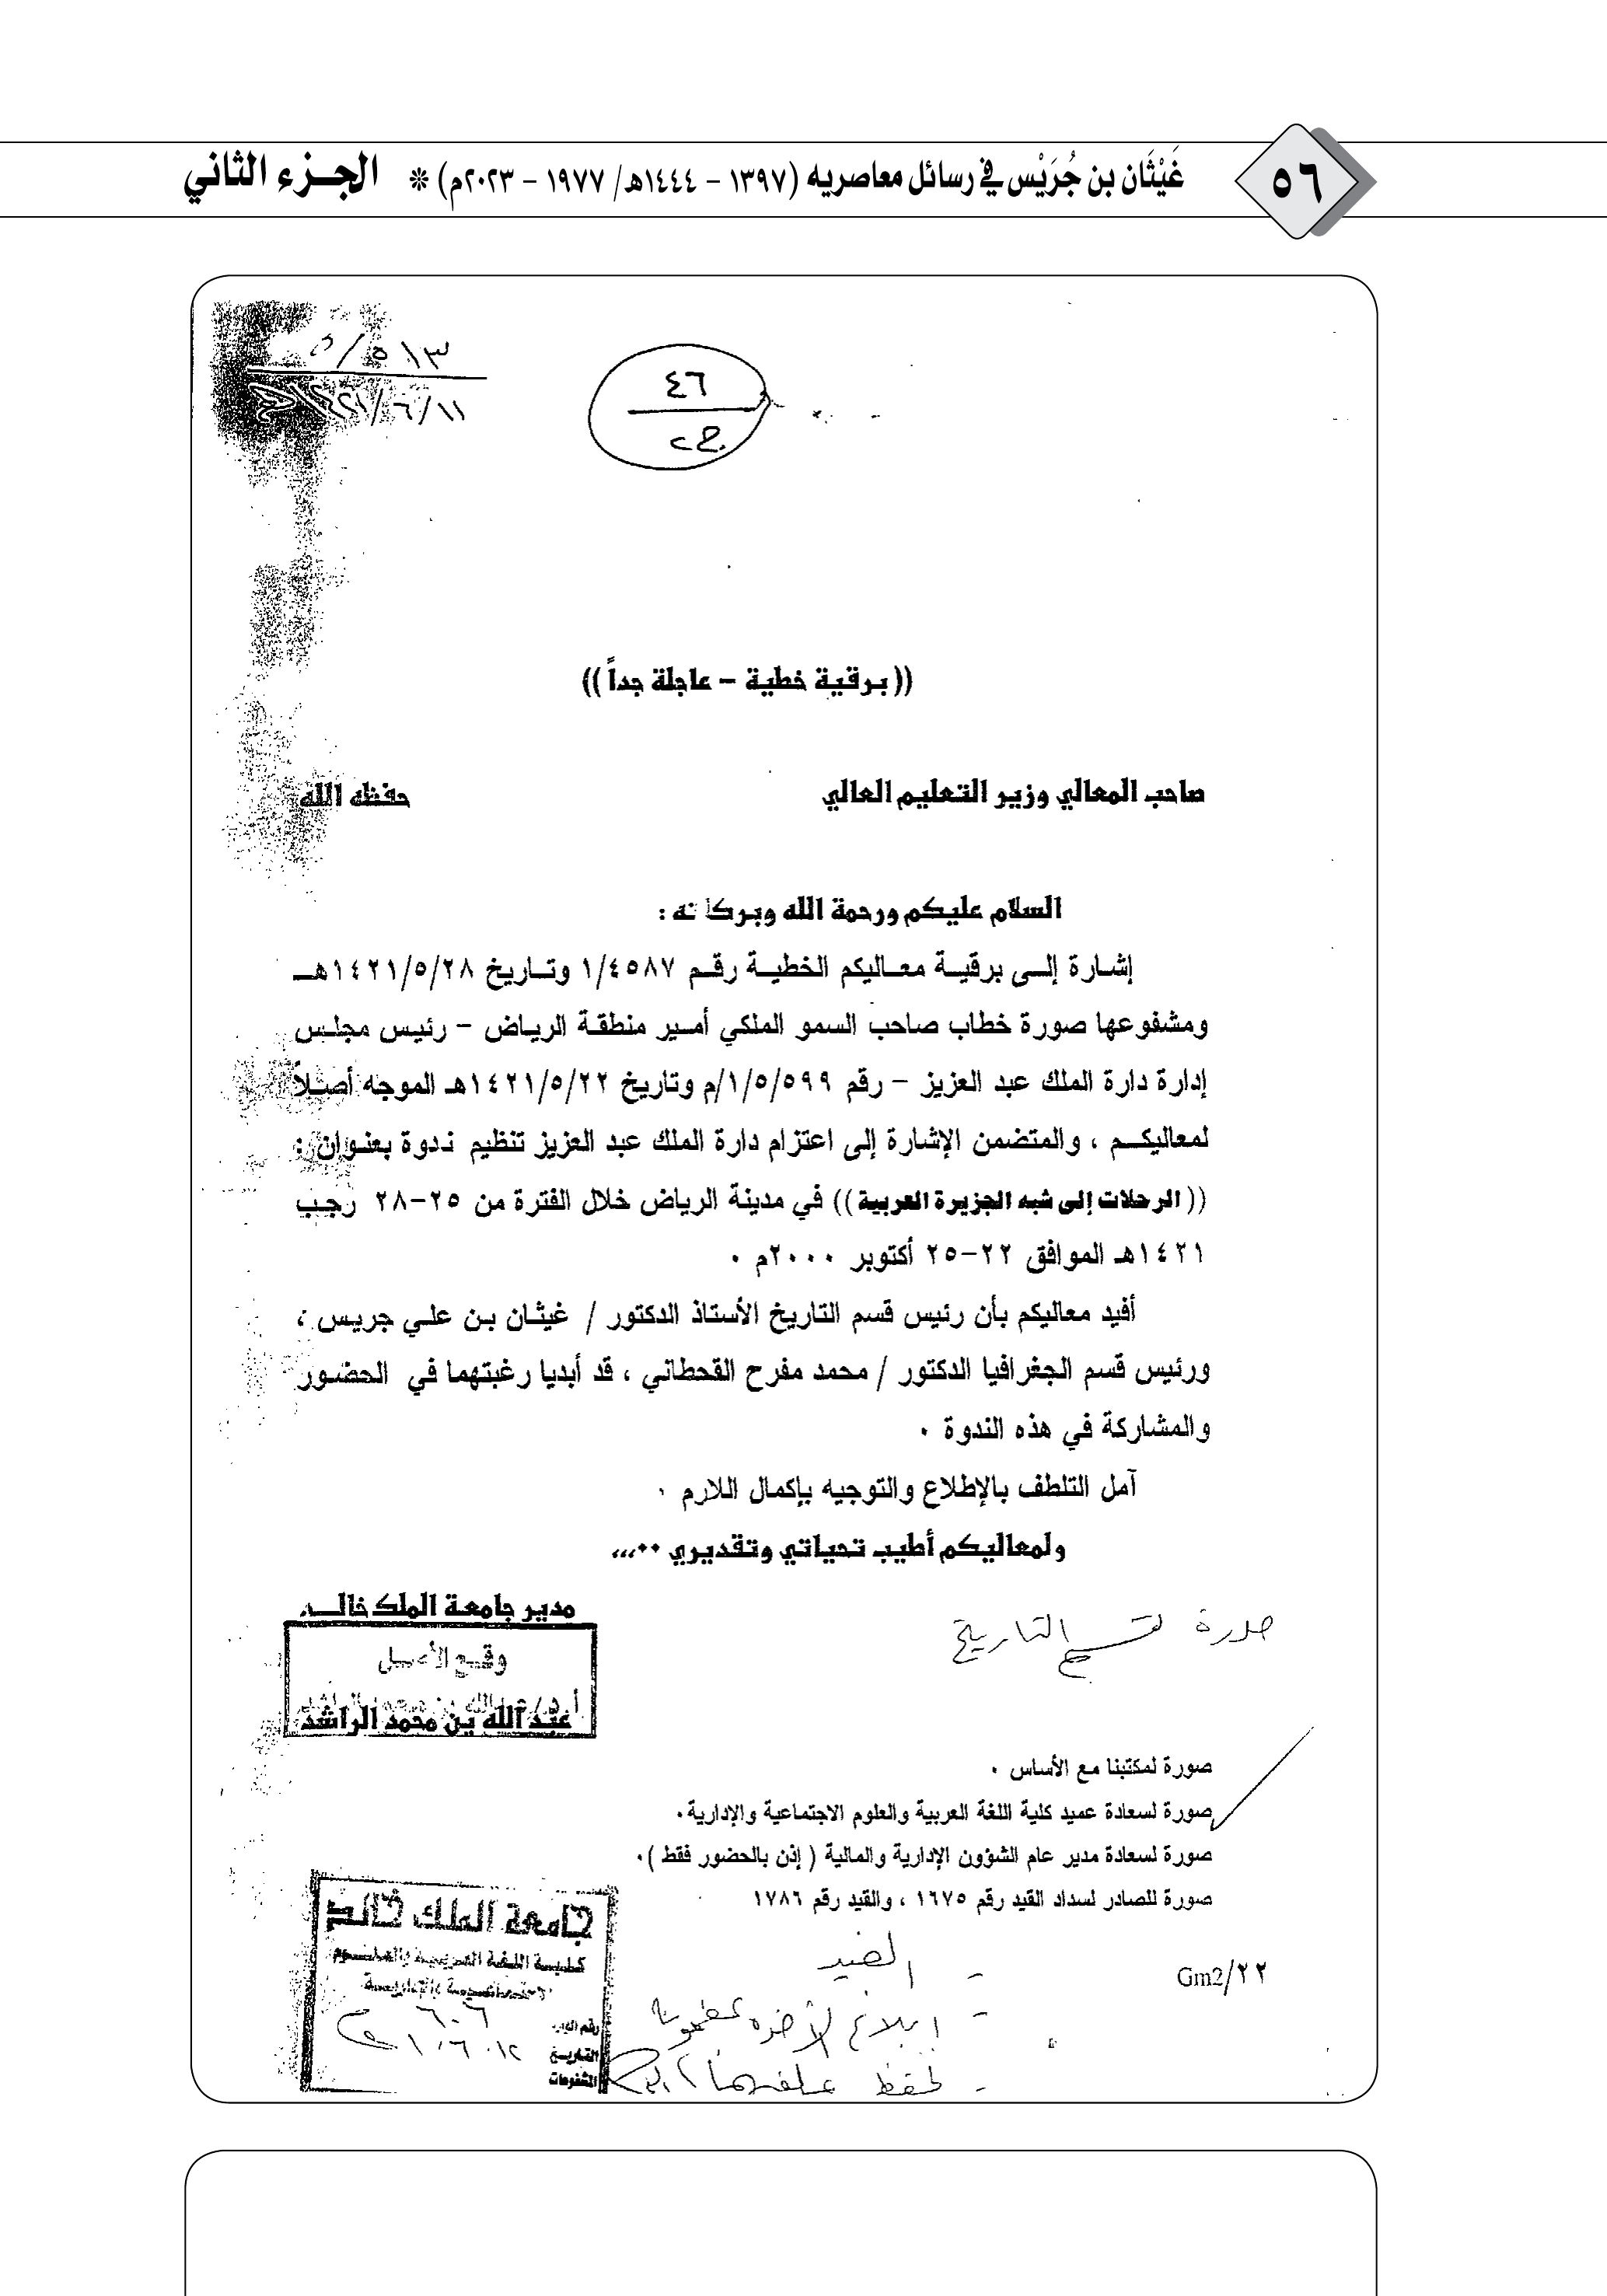 ٥٦
غَيْثَان بن جُرَيْس في رسائل معاصريه (١٣٩٧ - ١٤٤٤هـ/ ١٩٧٧ - ٢٠٢٣م) * الجزء الثاني
٥/٥١٣
١٤٢١/٦/١١
٤٦
((برقية خطية - عاجلة جداً))
صاحب المعالي وزير التعليم العالي حفظه الله
السلام عليكم ورحمة الله وبركاته :
إشارة إلى برقية معاليكم الخطية رقم ١/٤٥٨٧ وتاريخ ١٤٢١/٥/٢٨هـ
ومشفوعها صورة خطاب صاحب السمو الملكي أمير منطقة الرياض - رئيس مجلس
إدارة دارة الملك عبد العزيز - رقم ١/٥/٥٩٩/م وتاريخ ١٤٢١/٥/٢٢هـ الموجه أصلاً
لمعاليكم ، والمتضمن الإشارة إلى اعتزام دارة الملك عبد العزيز تنظيم ندوة بعنوان :
((الرحلات إلى شبه الجزيرة العربية)) في مدينة الرياض خلال الفترة من ٢٥-٢٨ رجب
١٤٢١هـ الموافق ٢٢-٢٥ أكتوبر ٢٠٠٠م ٠
أفيد معاليكم بأن رئيس قسم التاريخ الأستاذ الدكتور / غيثان بن علي جريس ،
ورئيس قسم الجغرافيا الدكتور / محمد مفرح القحطاني ، قد أبديا رغبتهما في الحضور
والمشاركة في هذه الندوة ٠
آمل التلطف بالإطلاع والتوجيه بإكمال اللازم ٠
ولمعاليكم أطيب تحياتي وتقديري ٠٠،،،
مدير جامعة الملك خالد
وقع الأصل
أ.د/عبدالله بن محمد الراشد
عبد الله بن محمد الراشد
صورة لقسم التاريخ
صورة لمكتبنا مع الأساس ٠
صورة لسعادة عميد كلية اللغة العربية والعلوم الاجتماعية والإدارية٠
صورة لسعادة مدير عام الشؤون الإدارية والمالية ( إذن بالحضور فقط )٠
صورة للصادر لسداد القيد رقم ١٦٧٥ ، والقيد رقم ١٧٨٦
Gm2/٢٢
جامعة الملك خالد
كلية اللغة العربية والعلوم
الاجتماعية والإدارية
رقم القيد ٦٠٦
التاريخ
المشفوعات
- القيد
- إبلاغ الأخوة بمضمونه